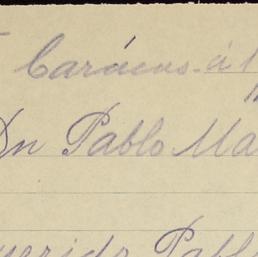 Carácas. á 1
Dn Pablo Ma
uerido Pabl